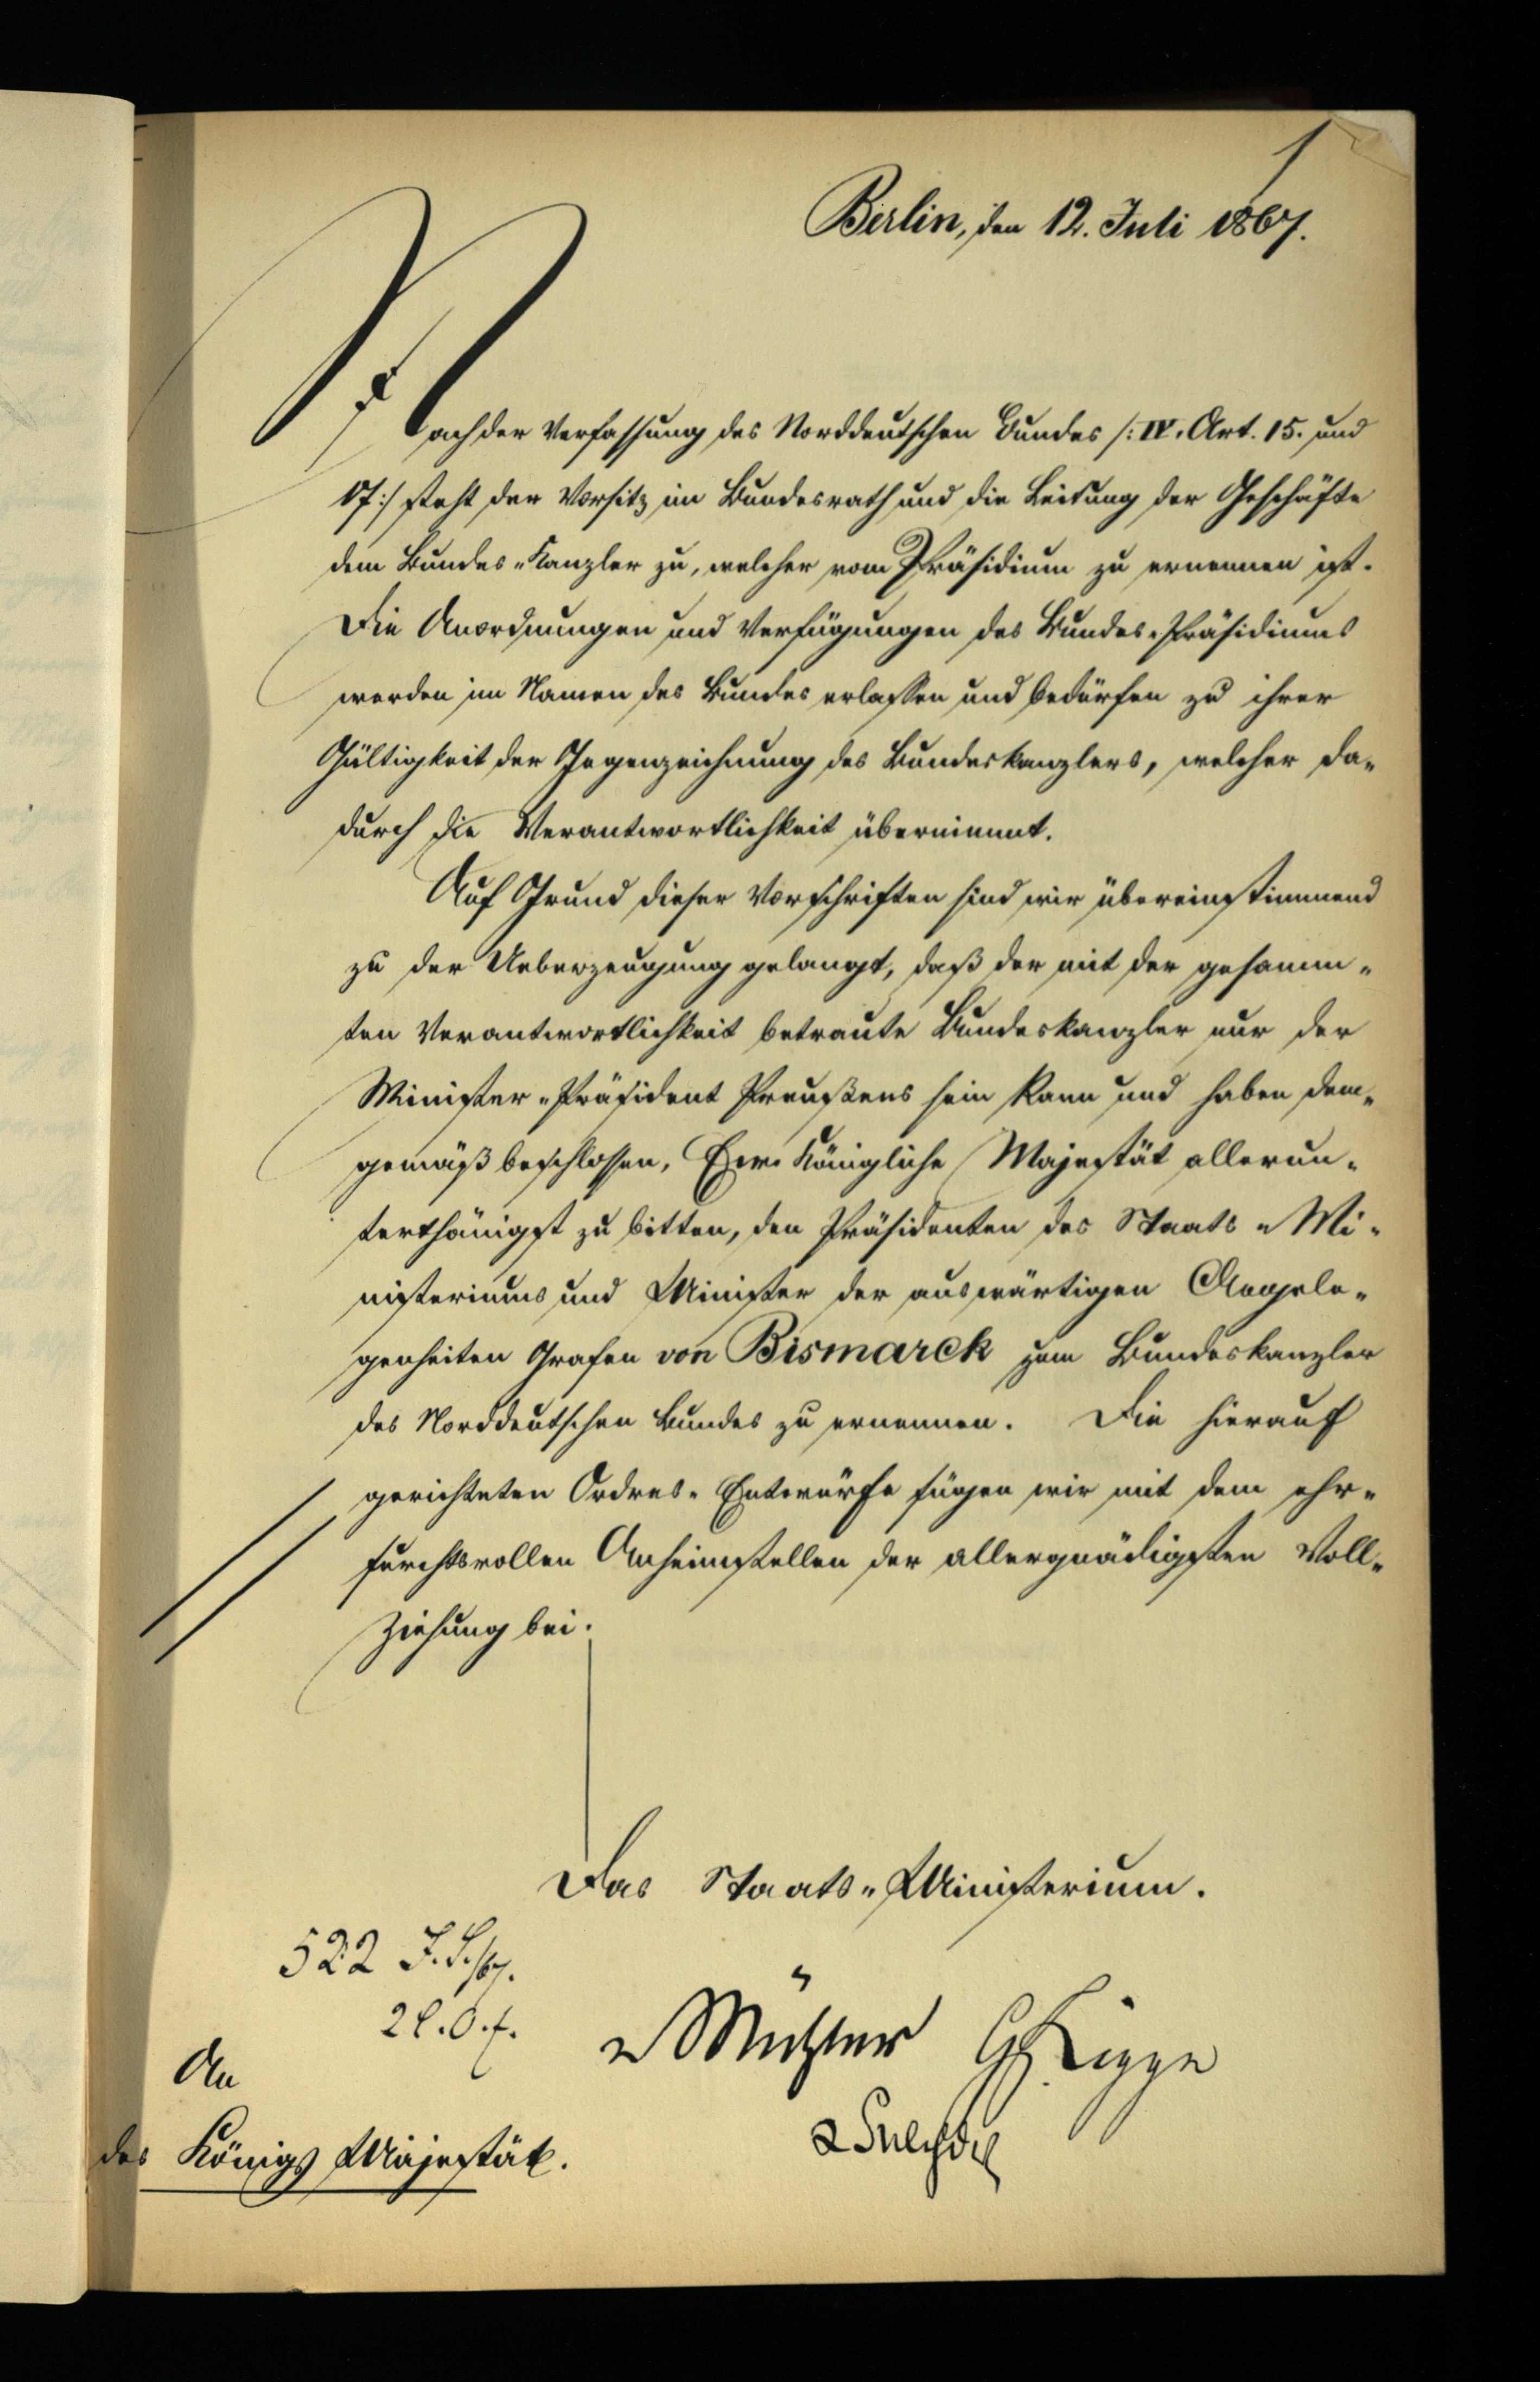 1
Berlin, den 12. Juli 1867.
Nach der Verfassung des Norddeutschen Bundes /: IV. Art. 15. und
17:/ steht der Vorsitz im Bundesrath und die Leitung der Geschäfte
dem Bundes-Kanzler zu, welcher vom Präsidium zu ernennen ist.
Die Anordnungen und Verfügungen des Bundes-Präsidiums
werden im Namen des Bundes erlassen und bedürfen zu ihrer
Gültigkeit der Gegenzeichnung des Bundeskanzlers, welcher da-
durch die Verantwortlichkeit übernimmt.
Auf Grund dieser Vorschriften sind wir übereinstimmend
zu der Ueberzeugung gelangt, daß der mit der gesamm-
ten Verantwortlichkeit betraute Bundeskanzler nur der
Minister-Präsident Preußens sein kann und haben dem-
gemäß beschlossen, Eure Königliche Majestät allerun-
terthänigst zu bitten, den Präsidenten des Staats-Mi-
nisteriums und Minister der auswärtigen Angele-
genheiten Grafen von Bismarck zum Bundeskanzler
des Norddeutschen Bundes zu ernennen. Die hierauf
gerichteten Ordres-Entwürfe fügen wir mit dem ehr-
furchtsvollen Anheimstellen der allergnädigsten Voll-
ziehung bei.
Das Staats-Ministerium.
522
v Mühler G Lippe
v Selchow
An
des Königs Majestät.